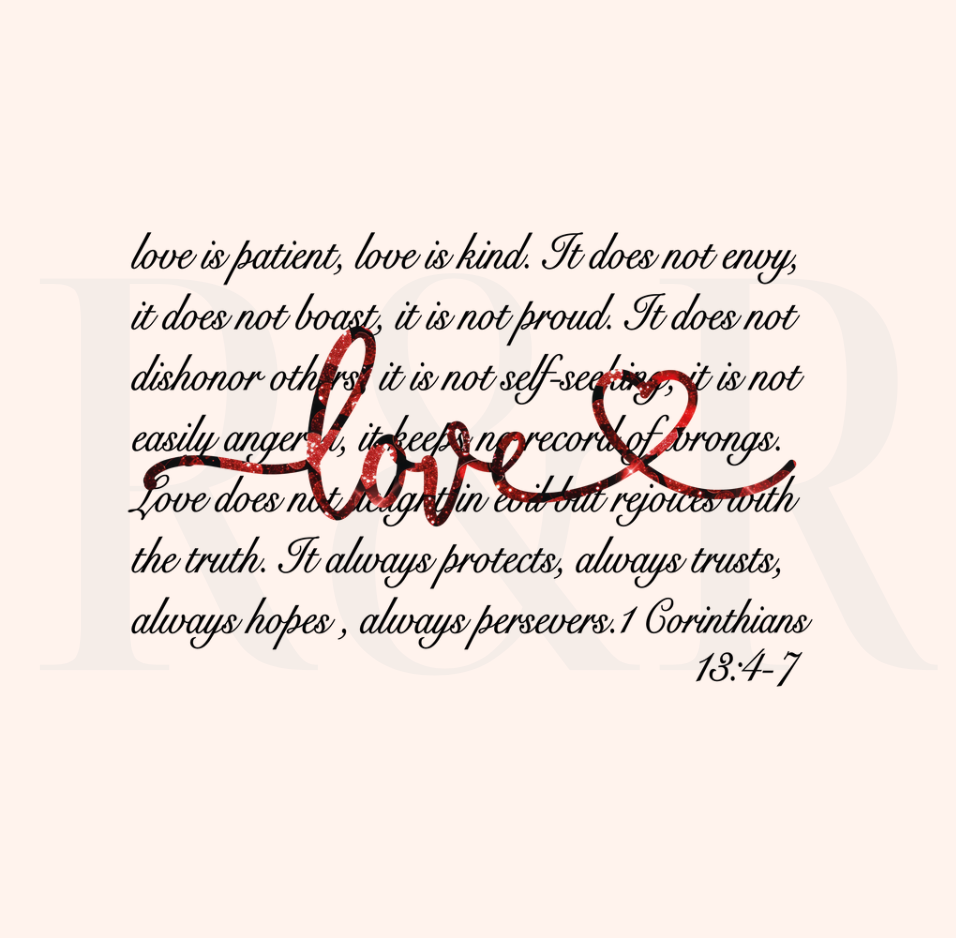 love is patient, love is kind. It does not envy,
it does not boast, it is not proud. It does not
dishonor others, it is not self-seeking, it is not
easily angered, it keeps no record of wrongs.
Love does not delight in evil but rejoices with
the truth. It always protects, always trusts,
always hopes , always persevers.1 Corinthians
13:4-7
love
R&R